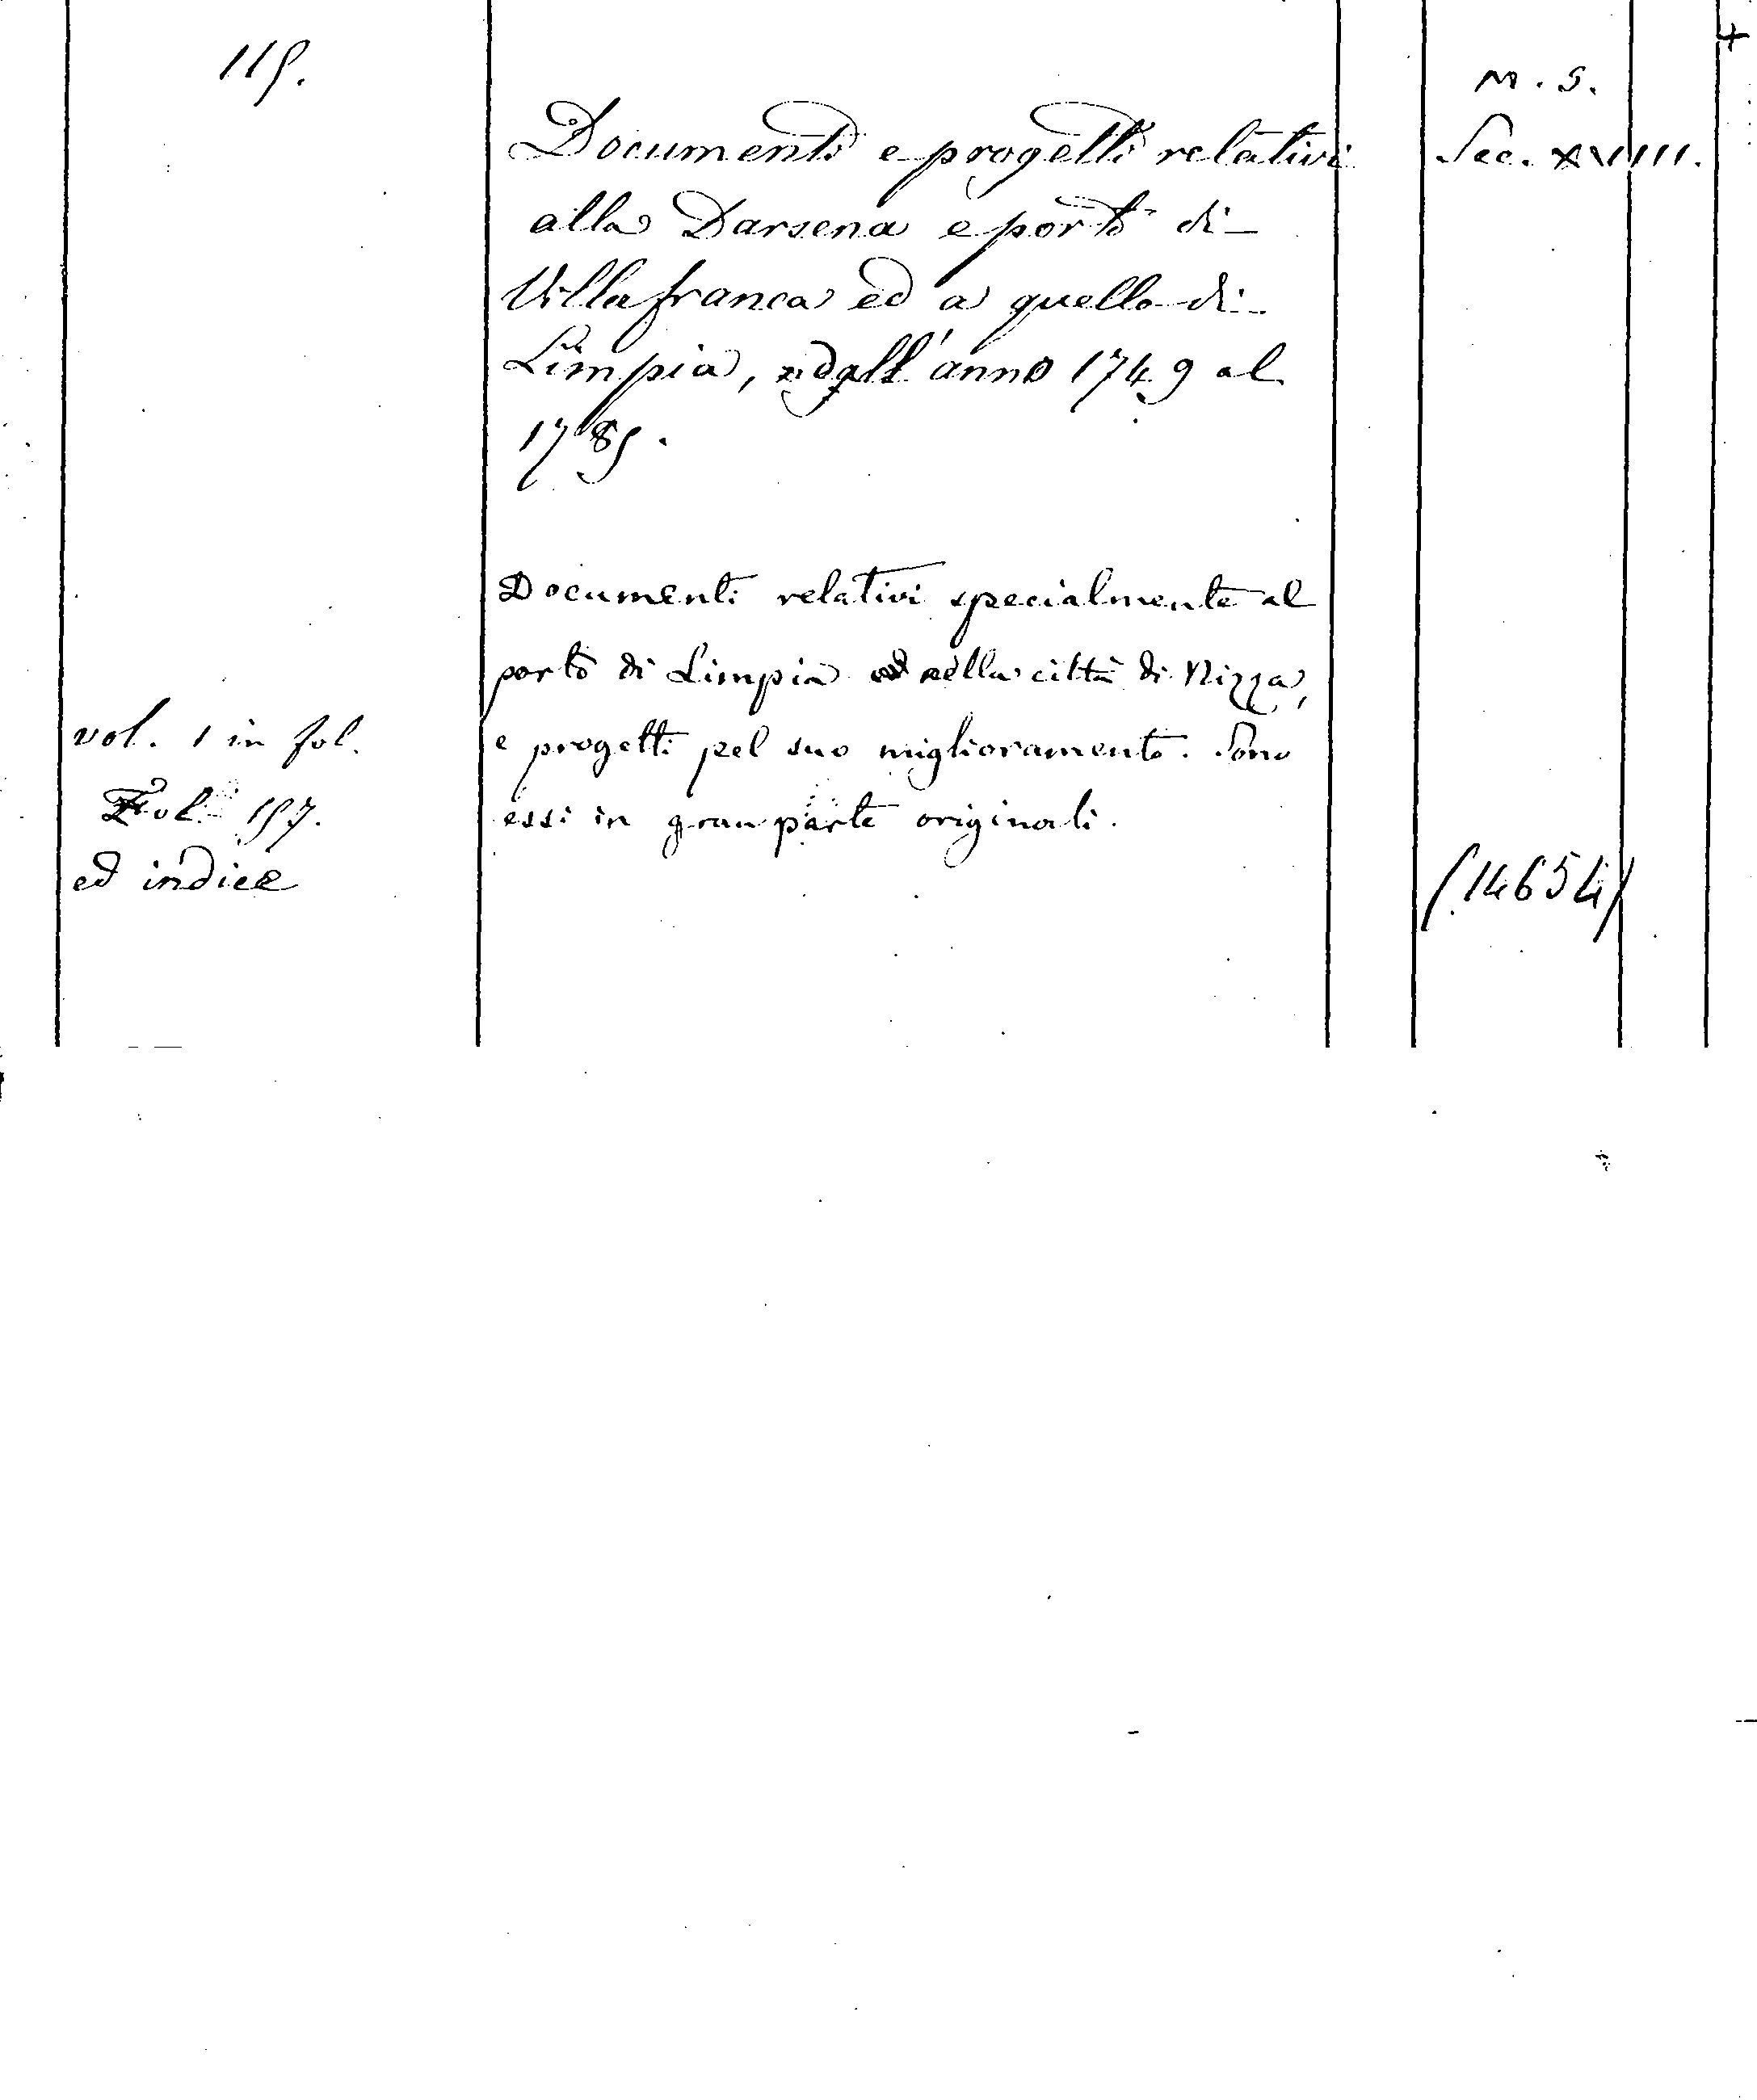 115.
Documenti e progetti relativi
alla Darsena e porto di
Villafranca ed a quello di
Limpia, dall'anno 1749 al
1785.
M. S.
Sec. XVIIII.
Documenti relativi specialmente al
porto di Limpia nella città di Nizza,
e progetti pel suo miglioramento. Sono
essi in gran parte originali.
vol. 1 in fol.
Fol. 157.
ed indice
(14654)